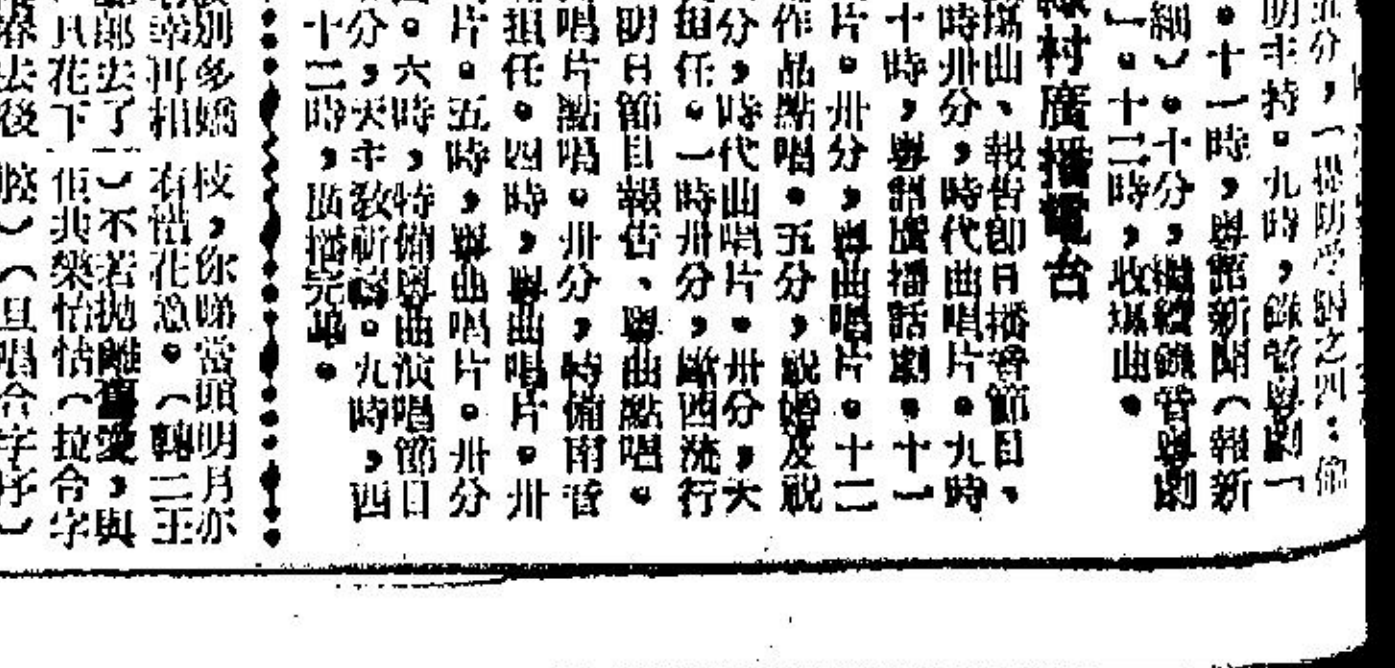 五分，一提防受騙之四：偷
明主持。九時，錄音粵劇「
。十一時，粵語新聞（報新
細）。十分，繼續錄音粵劇
」。十二時，收場曲。
綠村廣播電台
場曲、報告即日播音節目、
時卅分，時代曲唱片。九時
十時，粵語廣播話劇。十一
片。卅分，粵曲唱片。十二
作品點唱。五分，說婚及祝
分，時代曲唱片。卅分，大
担任。一時卅分，歐西流行
明日節目報告、粵曲點唱。
唱片點唱。卅分，特備南音
担任。四時，粵曲唱片。卅
片。五時，粵曲唱片。卅分
。六時，特備粵曲演唱節目
分，天主教祈禱。九時，西
十二時，廣播完畢。
別多嬌 枝，你睇當頭明月亦
幸再相 有惜花意。（轉二王
郎去了 ）不若拋離舊愛，與
花下 佢共樂怡怡（拉合字
春去後 腔）（旦唱合字序）